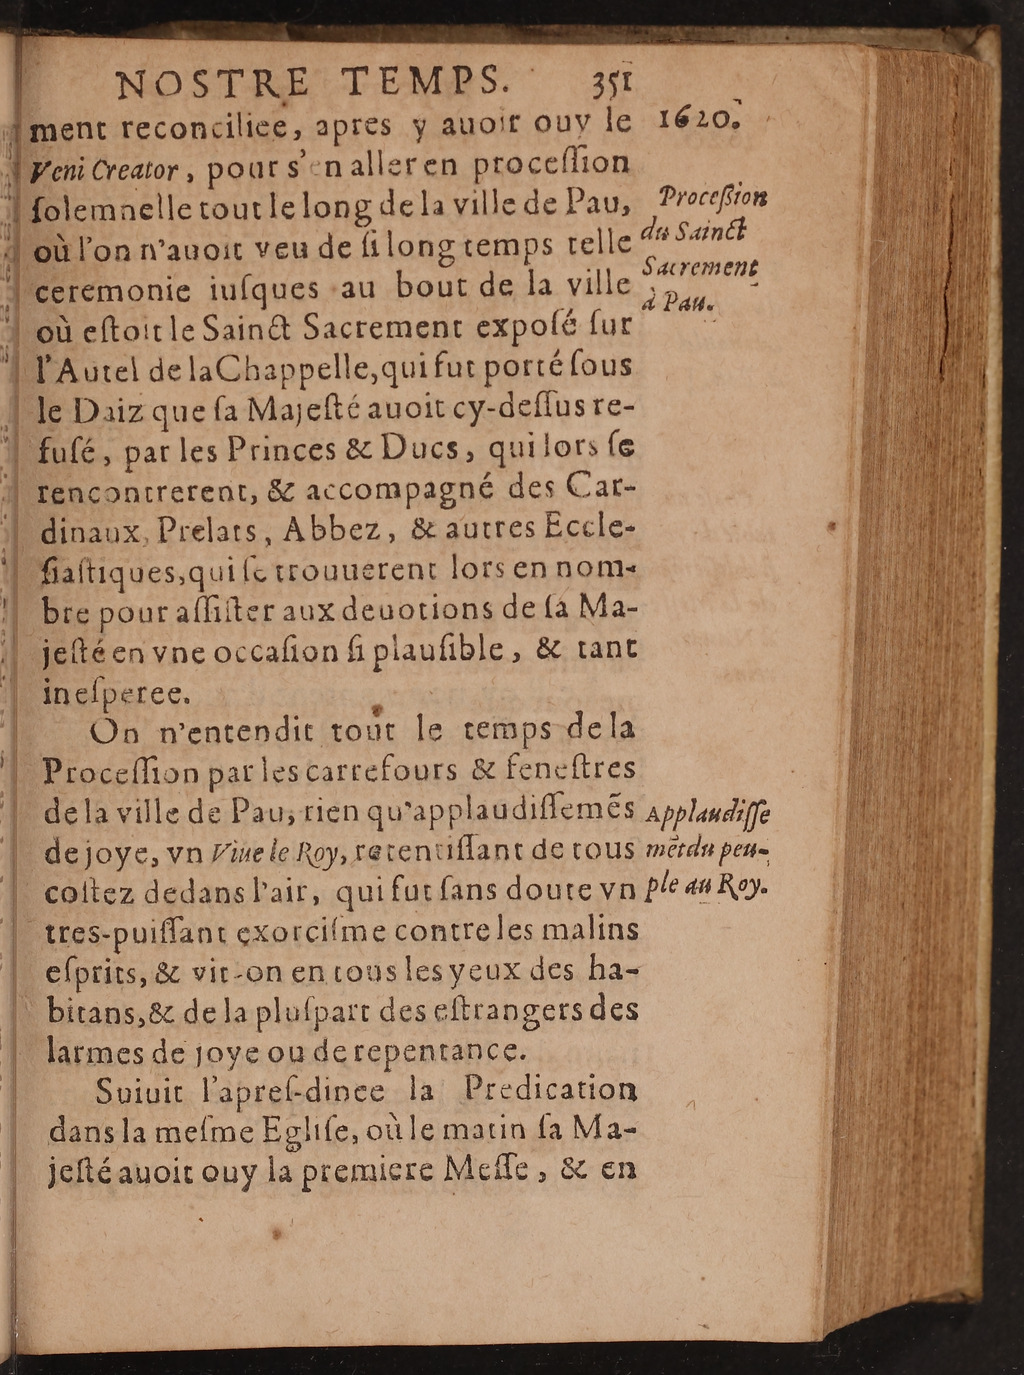 NOSTRE TEMPS. 351
ment reconciliee, apres y auoir ouy le
Veni Creator, pour s'en aller en proceſſion
ſolemnelle tout le long de la ville de Pau,
où l'on n'auoit veu de ſi long temps telle
ceremonie iuſques au bout de la ville
où eſtoit le Sainct Sacrement expoſé ſur
l'Autel de la Chappelle, qui fut porté ſous
le Daiz que ſa Majeſté auoit cy-deſſus re-
fuſé, par les Princes & Ducs, qui lors ſe
rencontrerent, & accompagné des Car-
dinaux, Prelats, Abbez, & autres Eccle-
ſiaſtiques, qui ſe trouuerent lors en nom-
bre pour aſſiſter aux deuotions de ſa Ma-
jeſté en vne occaſion ſi plauſible, & tant
ineſperee.
On n'entendit tout le temps de la
Proceſſion par les carrefours & feneſtres
de la ville de Pau, rien qu'applaudiſſemẽs
de joye, vn Viue le Roy, retentiſſant de tous
coſtez dedans l'air, qui fut ſans doute vn
tres-puiſſant exorciſme contre les malins
eſprits, & vit-on en tous les yeux des ha-
bitans, & de la pluſpart des eſtrangers des
larmes de joye ou de repentance.
Suiuit l'apreſ-dinee la Predication
dans la meſme Egliſe, où le matin ſa Ma-
jeſté auoit ouy la premiere Meſſe, & en
1620.
Proceſſion
du Sainct
Sacrement
à Pau.
Applaudiſſe
mẽt du peu-
ple au Roy.